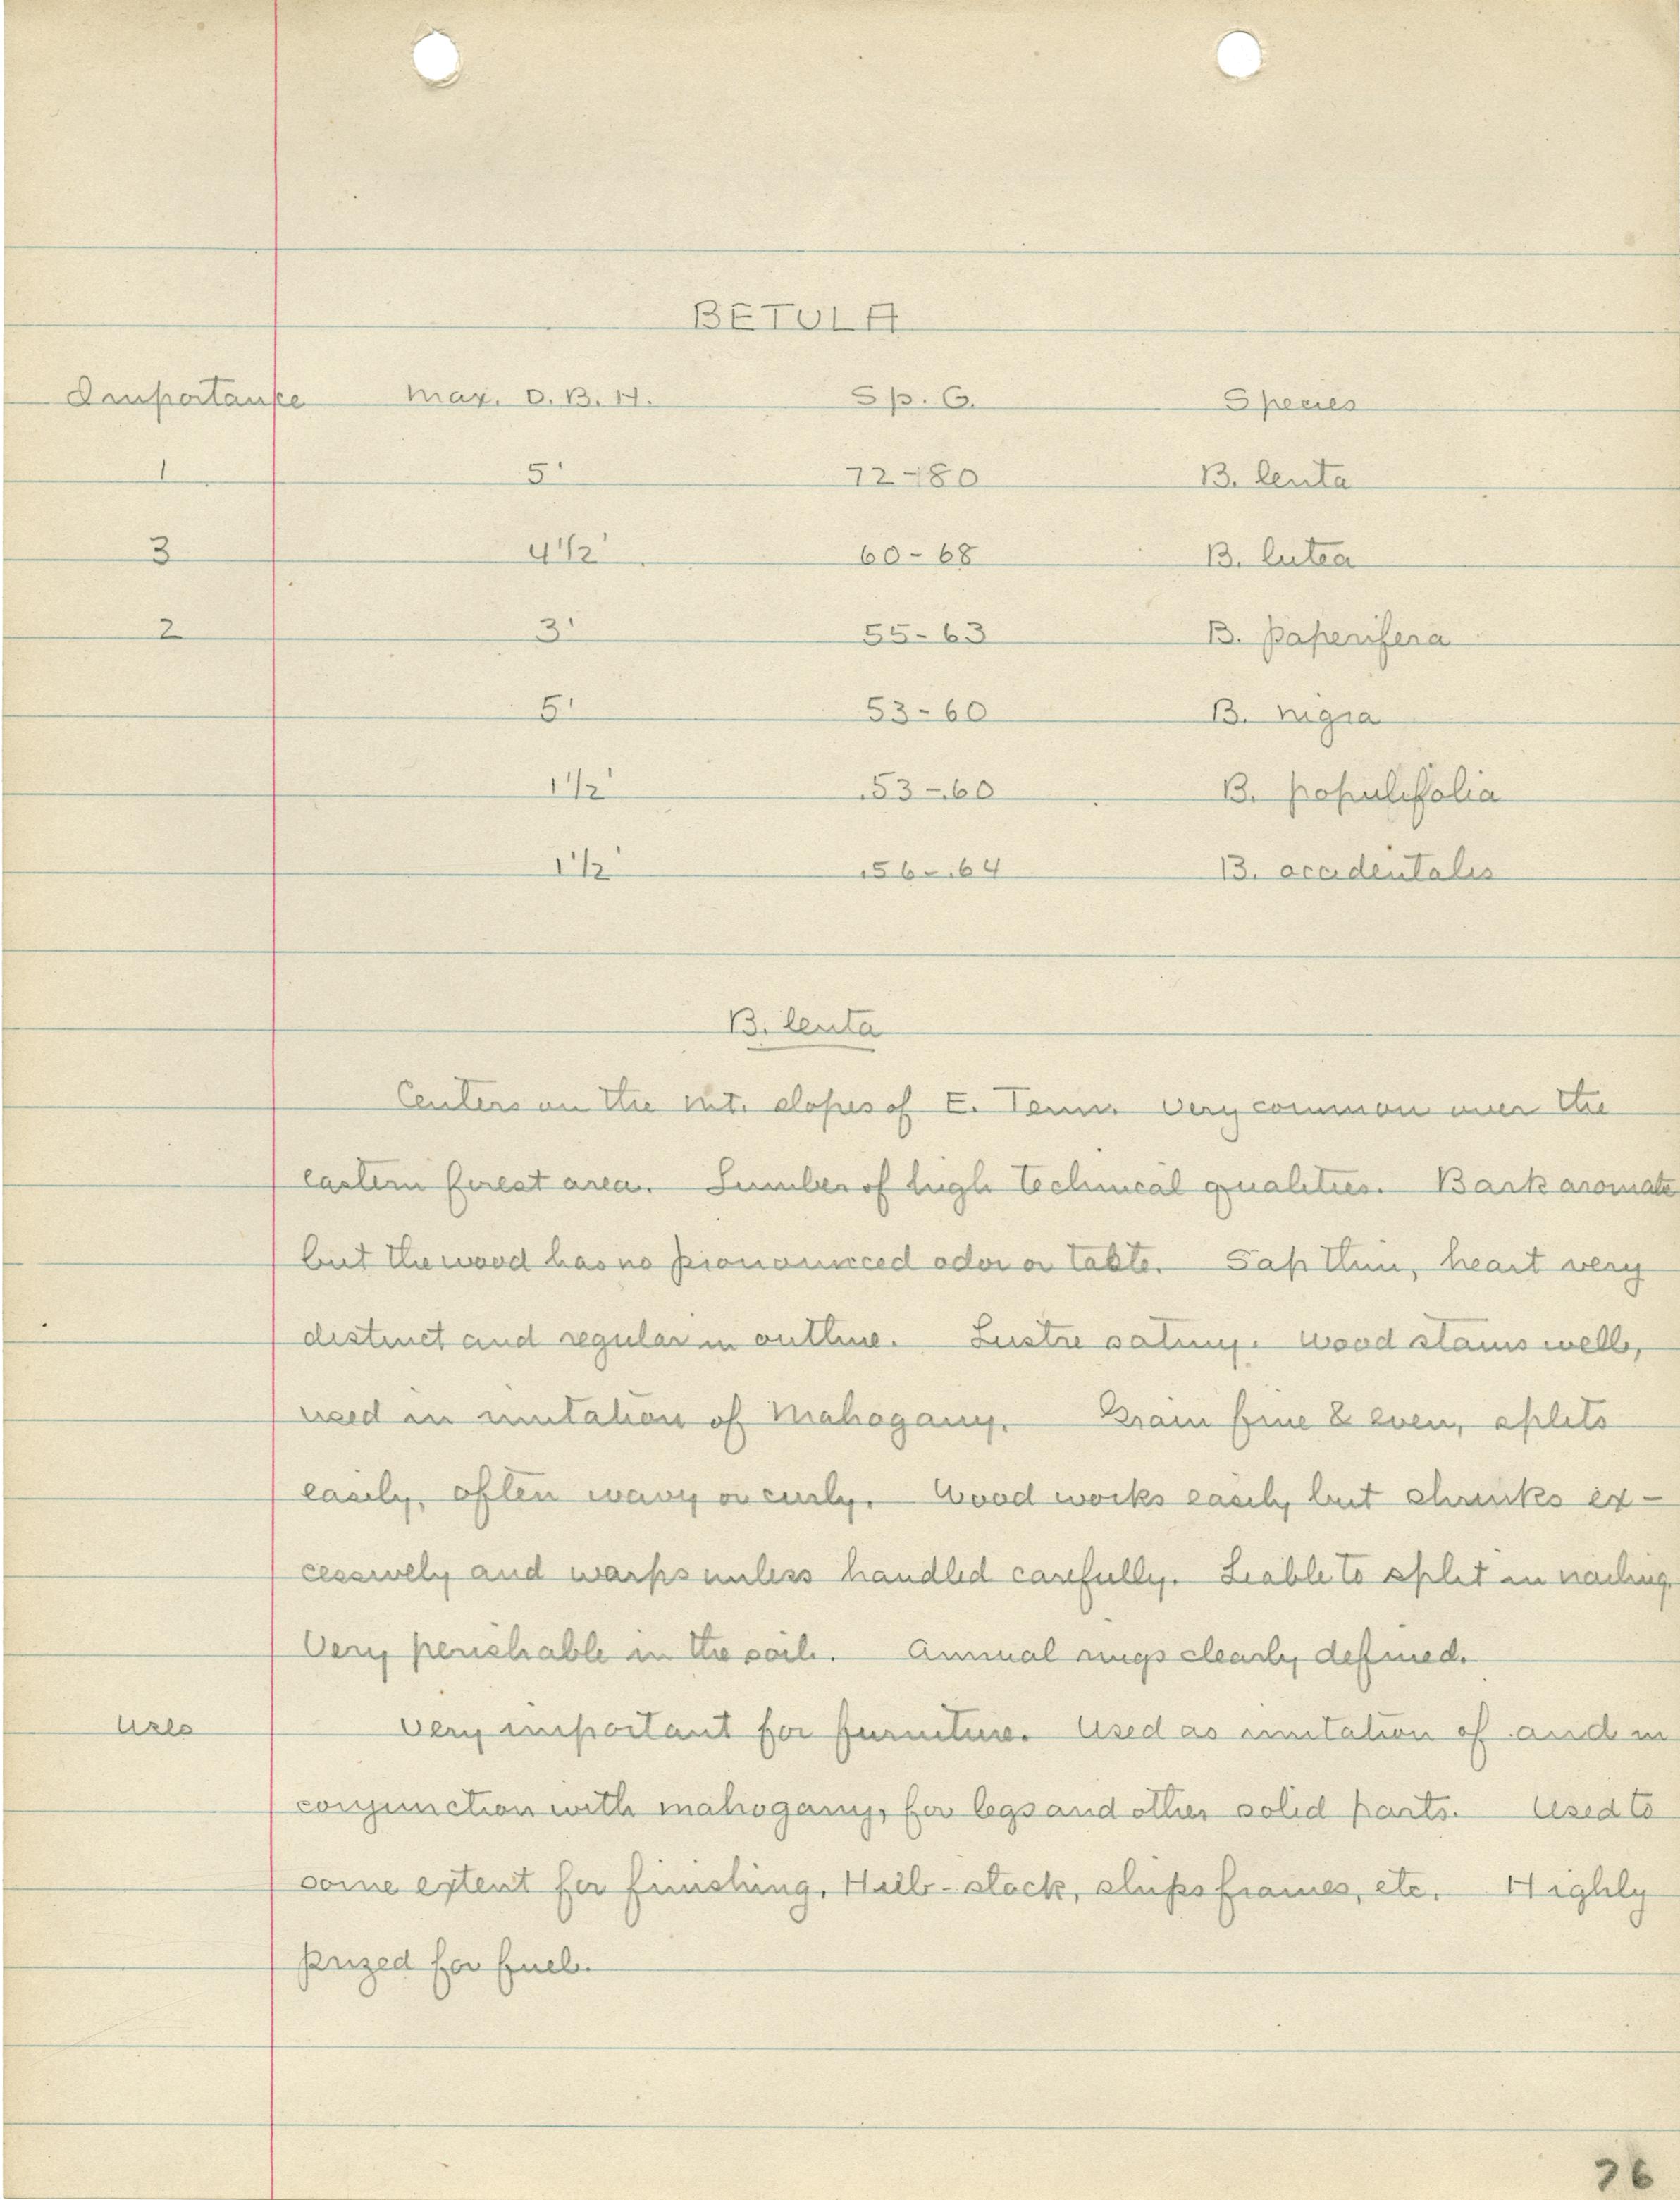 BETULA
Importance Max. D.B.H. Sp. G. Species
1 5' 72-80 B. lenta
3 4 1/2' 60-68 B. lutea
2 3' 55-63 B. paperifera
5' 53-60 B. nigra
1 1/2' .53-.60 B. populifolia
1 1/2' .56-.64 B. occidentalis
B. lenta
Centers on the mt. slopes of E. Tenn. Very common over the
eastern forest area. Lumber of high technical qualities. Bark aromatic
but the wood has no pronounced odor or taste. Sap thin, heart very
distinct and regular in outline. Lustre satiny. Wood stains well,
used in imitation of Mahogany. Grain fine & even, splits
easily, often wavy or curly. Wood works easily but shrinks ex-
cessively and warps unless handled carefully. Liable to split in nailing.
Very perishable in the soil. Annual rings clearly defined.
Uses Very important for furniture. Used as imitation of and in
conjunction with mahogany, for legs and other solid parts. Used to
some extent for finishing, Hub-stock, ships frames, etc. Highly
prized for fuel.
76